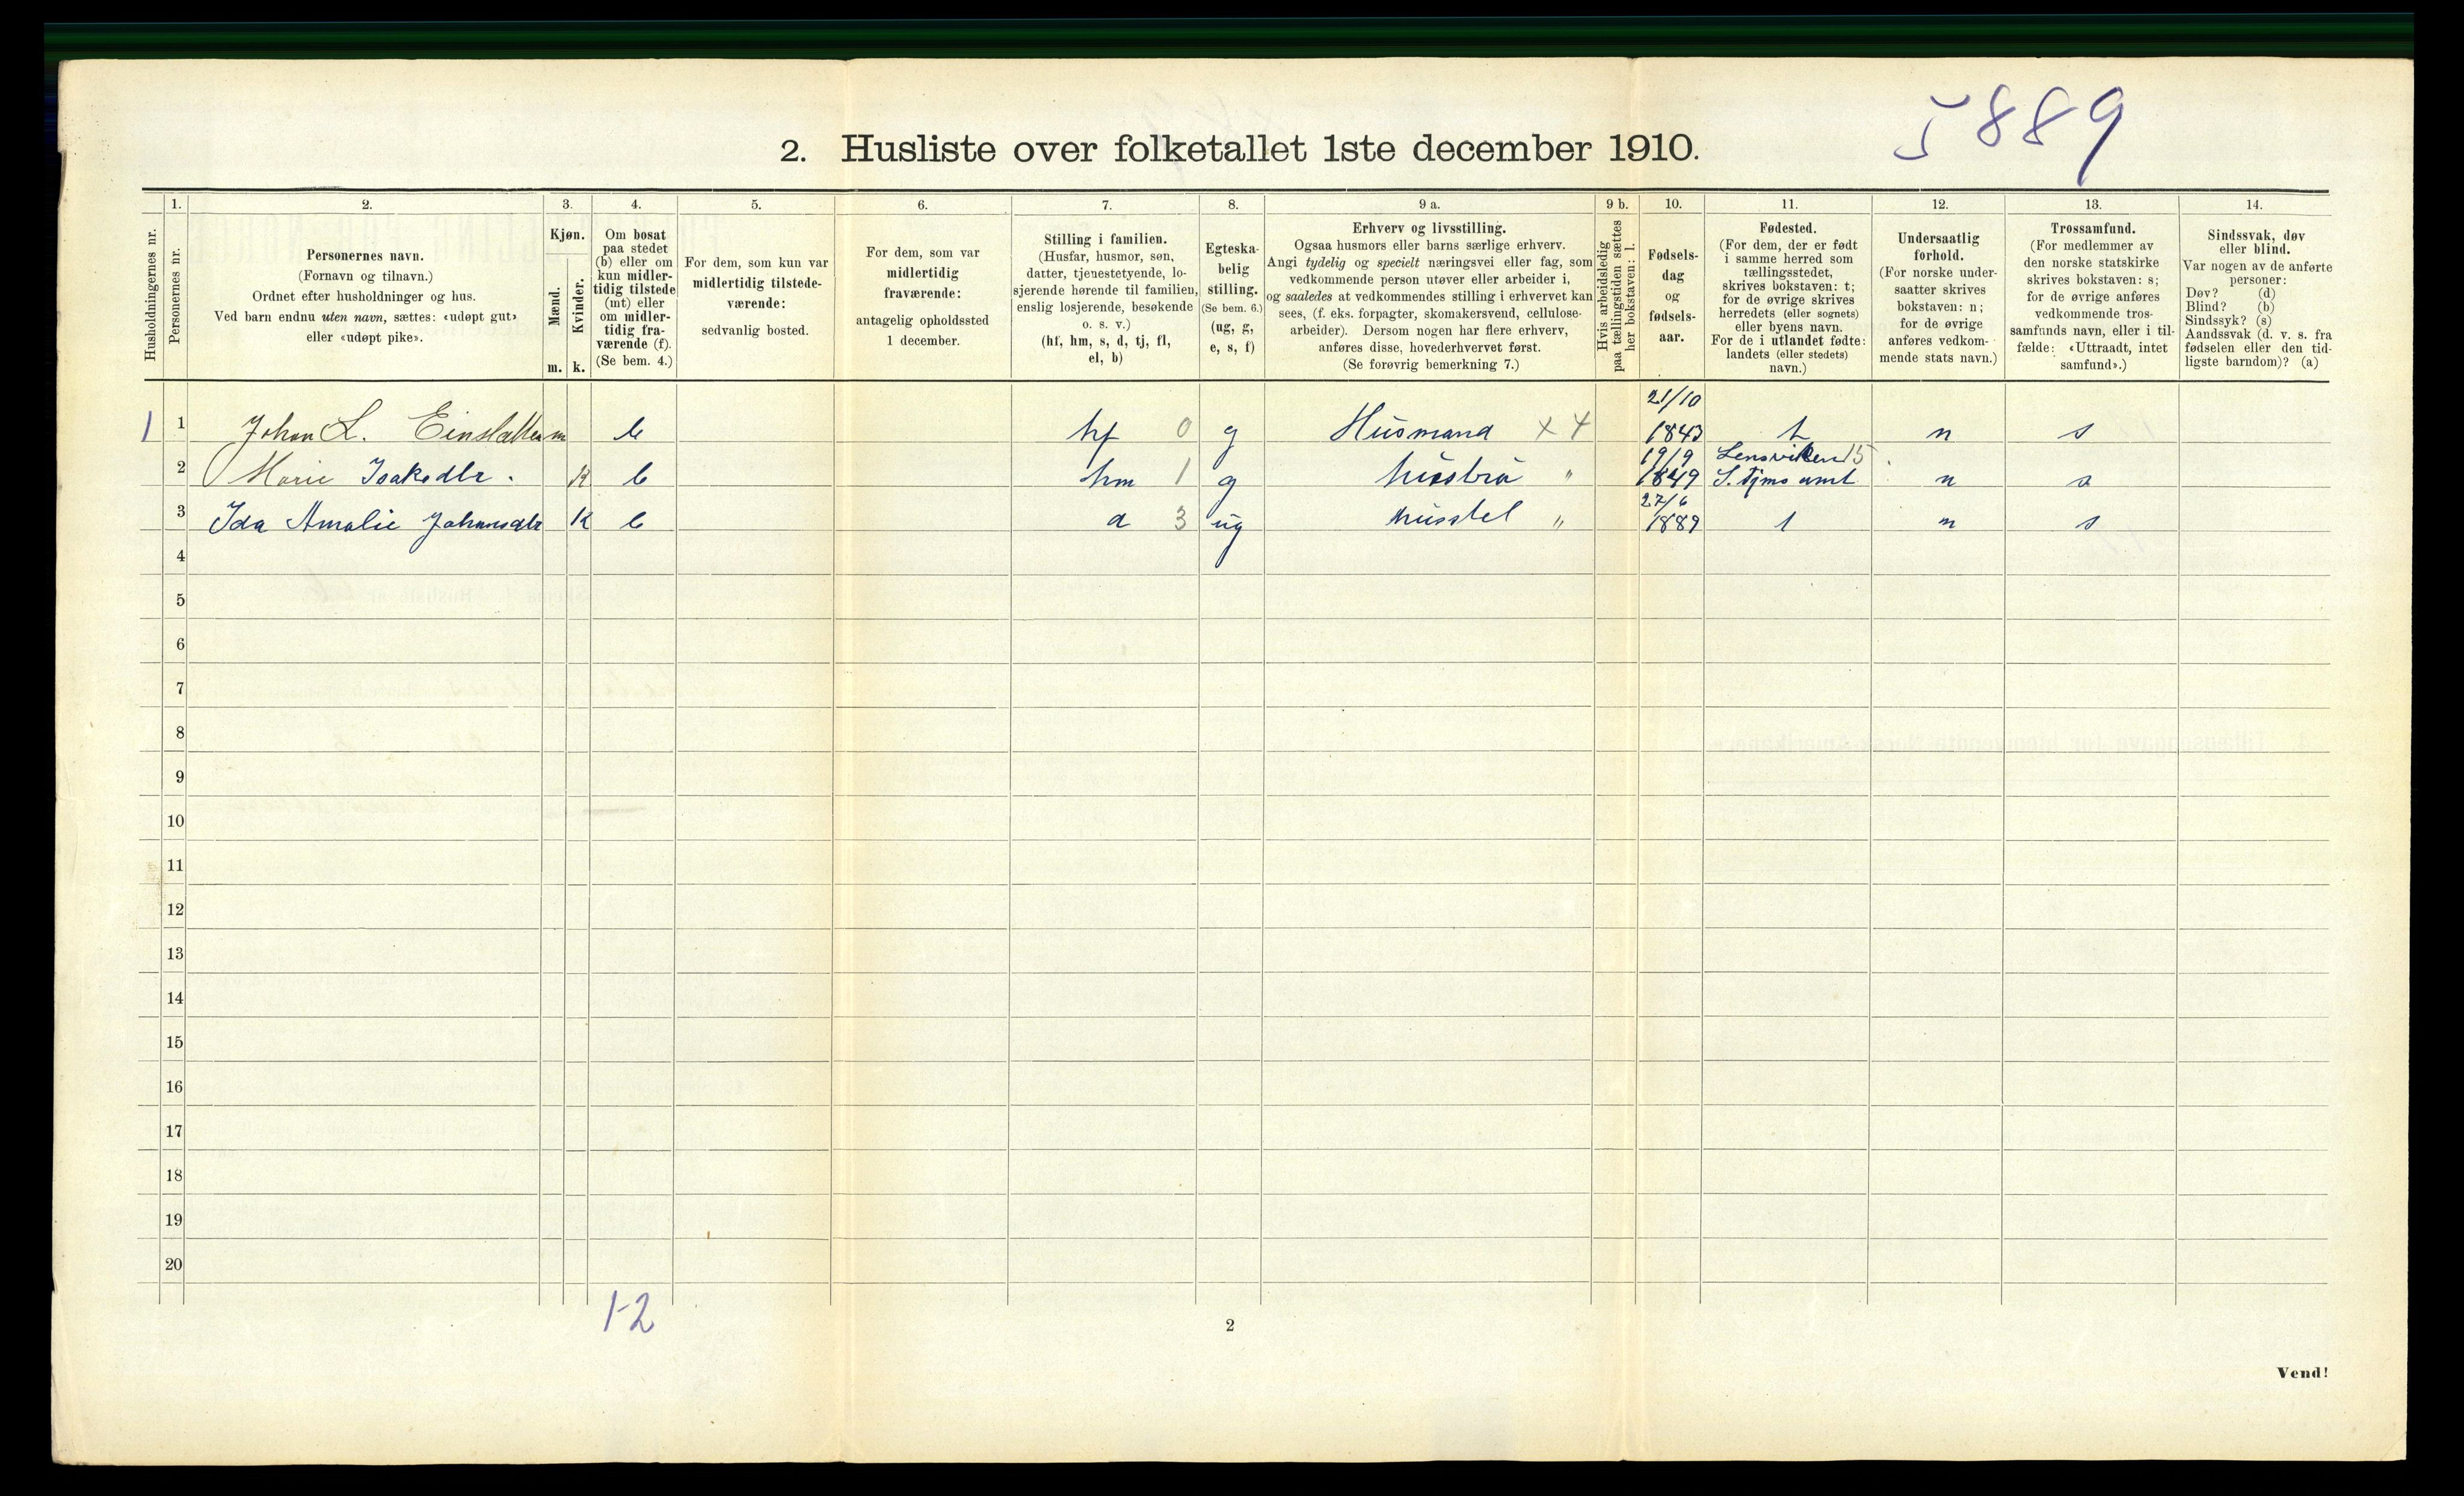 5889
2. Husliste over folketallet 1ste december 1910.
Husholdningernes nr.
1. Personernes nr.
2. Personernes navn.
(Fornavn og tilnavn.)
Ordnet efter husholdninger og hus.
Ved barn endnu uten navn, sættes: «udøpt gut»
eller «udøpt pike».
3. Kjøn.
Mænd. m.
Kvinder. k.
4. Om bosat
paa stedet
(b) eller om
kun midler-
tidig tilstede
(mt) eller
om midler-
tidig fra-
værende (f).
(Se bem. 4.)
5. For dem, som kun var
midlertidig tilstede-
værende:
sedvanlig bosted.
6. For dem, som var
midlertidig
fraværende:
antagelig opholdssted
1 december.
7. Stilling i familien.
(Husfar, husmor, søn,
datter, tjenestetyende, lo-
sjerende hørende til familien,
enslig losjerende, besøkende
o. s. v.)
(hf, hm, s, d, tj, fl,
el, b)
8. Egteska-
belig
stilling.
(Se bem. 6.)
(ug, g,
e, s, f)
9 a. Erhverv og livsstilling.
Ogsaa husmors eller barns særlige erhverv.
Angi tydelig og specielt næringsvei eller fag, som
vedkommende person utøver eller arbeider i,
og saaledes at vedkommendes stilling i erhvervet kan
sees, (f. eks. forpagter, skomakersvend, cellulose-
arbeider). Dersom nogen har flere erhverv,
anføres disse, hovederhvervet først.
(Se forøvrig bemerkning 7.)
9 b. Hvis arbeidsledig
paa tællingstiden sættes
her bokstaven: l.
10. Fødsels-
dag
og
fødsels-
aar.
11. Fødested.
(For dem, der er født
i samme herred som
tællingsstedet,
skrives bokstaven: t;
for de øvrige skrives
herredets (eller sognets)
eller byens navn.
For de i utlandet fødte:
landets (eller stedets)
navn.)
12. Undersaatlig
forhold.
(For norske under-
saatter skrives
bokstaven: n;
for de øvrige
anføres vedkom-
mende stats navn.)
13. Trossamfund.
(For medlemmer av
den norske statskirke
skrives bokstaven: s;
for de øvrige anføres
vedkommende tros-
samfunds navn, eller i til-
fælde: «Uttraadt, intet
samfund».)
14. Sindssvak, døv
eller blind.
Var nogen av de anførte
personer:
Døv? (d)
Blind? (b)
Sindssyk? (s)
Aandssvak (d. v. s. fra
fødselen eller den tid-
ligste barndom)? (a)
1 1 Johan L. m b hf 0 g Husmand x 4 21/10 1843 t n s
2 Marie Isaksdtr. K b hm 1 g husbrù " 19/9 1849 Lensviken 15 S. Tjms amt n s
3 Ida Amalie Johansdtr K b d 3 ug husstel " 27/6 1889 t n s
4
5
6
7
8
9
10
11
12
13
14
15
16
17
18
19
20
1-2
2
Vend!